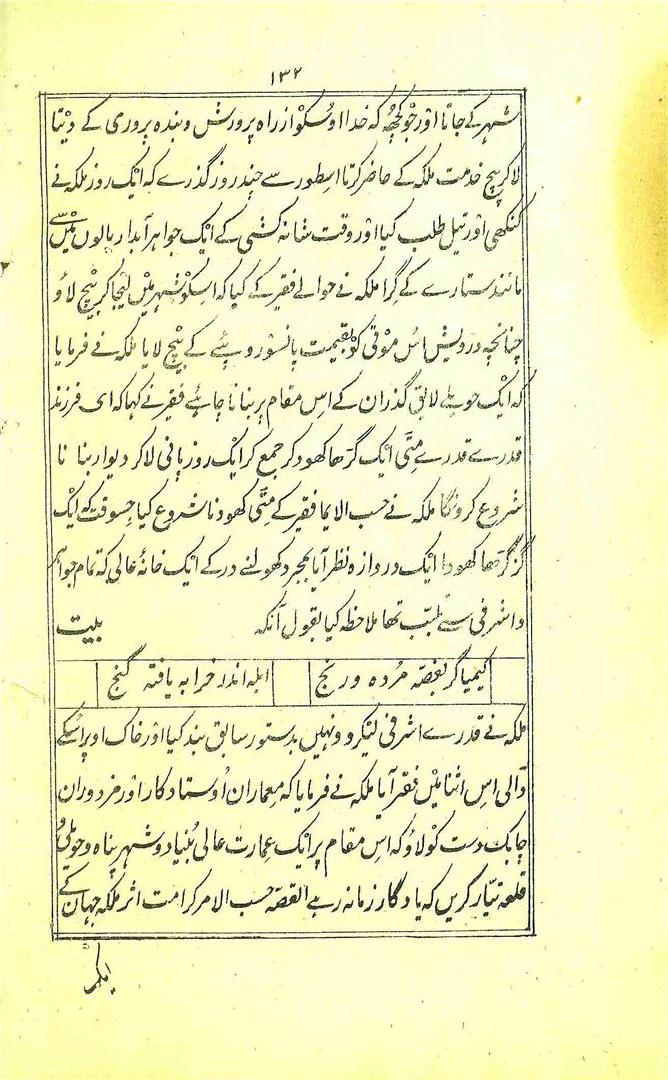 ١٣٢
شہر کے جاتا اور جو کچھہ کہ خدا اوسکو از راہ پرورش و بندہ پروری کے دیتا
لا کر بیچ خدمت ملکہ کے حاضر کرتا اسطور سے چند روز گذرے کہ ایک روز ملکہ نے
کنگھی اور تیل طلب کیا اور وقت شانہ کشی کے ایک جواہر آبدار بالوں میں سے
مانند ستارے کے گرا ملکہ نے حوالے فقیر کے کیا کہ اسکو شہر میں لیجا کر بیچ لاؤ
چنانچہ درویش اس موتی کو بقیمت پانسو روپئے کے بیچ لایا ملکہ نے فرمایا
کہ ایک حویلے لایق گذران کے اس مقام پر بنانا چاہئے فقیر نے کہا کہ ای فرزند
قدرے قدرے مٹی ایک گڑھا کھود کر جمع کر ایک روز پانی لا کر دیوار بنا نا
شروع کرونگا ملکہ نے حسب الایما فقیر کے مٹی کھودنا شروع کیا جسوقت کہ ایک
گز گڑھا کھودا ایک دروازہ نظر آیا بمجرد کھولنے در کے ایک خانۂ عالی کہ تمام جواہر
و اشرفی سے لبالب تھا ملاحظہ کیا بقول آنکہ بیت
کیمیا گر بغصہ مردہ و رنج ابلہ اندر خرابہ یافتہ گنج
ملکہ نے قدرے اشرفی لیکر وونہیں بدستور سابق بند کیا اور خاک اوپر اسکے
ڈالی اس اثنا میں فقیر آیا ملکہ نے فرمایا کہ معماران اُوستاد کار اور مزدوران
چابک دست کو لاؤ کہ اس مقام پر ایک عمارت عالی بنیاد و شہر پناہ و حویلی و
قلعہ تیار کریں کہ یادگار زمانہ رہے القصہ حسب الامر کرامت اثر ملکہ جہان کے
ایک